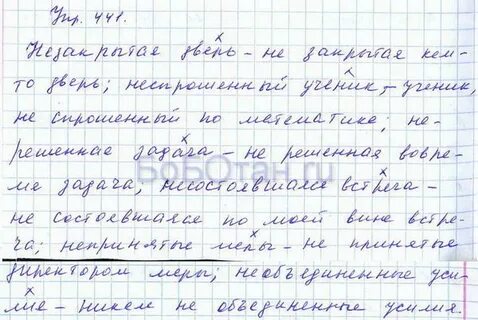 Упр. 441.
Незакрытая дверь – не закрытая кем-
то дверь; неспрошенный ученик, – ученик,
не спрошенный по математике; не-
решенная задача – не решенная вовре-
мя задача, несостоявшаяся встреча –
не состоявшаяся по моей вине встре-
ча; непринятые меры – не принятые
директором меры; необъединенные уси-
лия – никем не объединенные усилия.
БоБОтан.ru